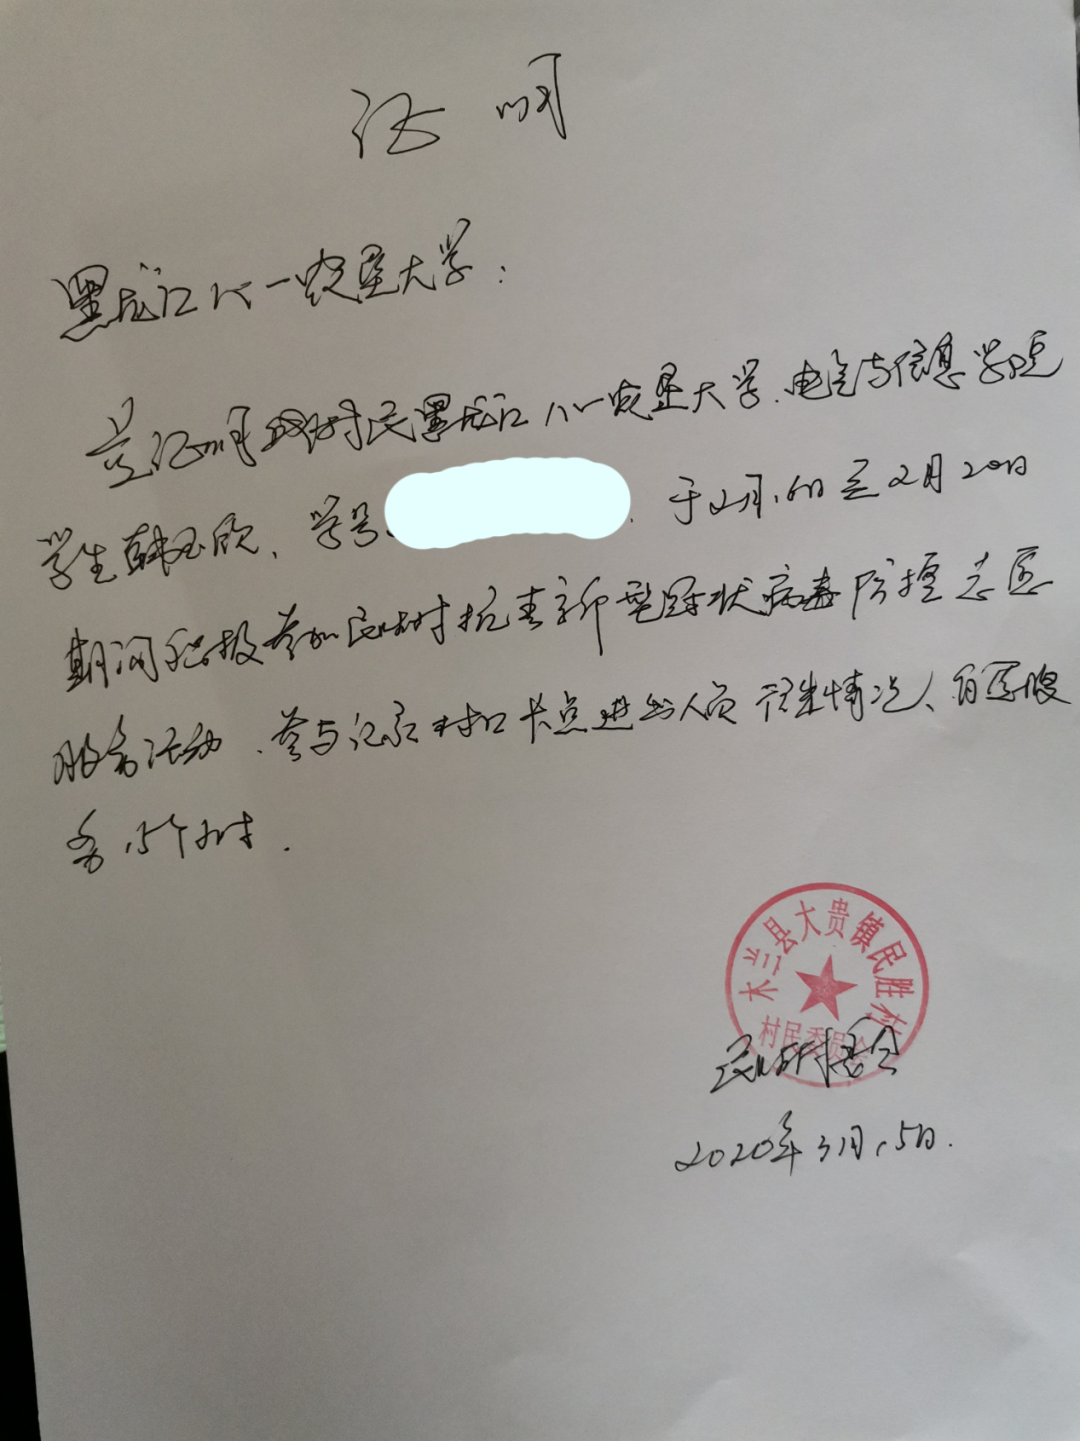 证明
黑龙江八一农垦大学：
兹证明我村村民黑龙江八一农垦大学、电气与信息学院
学生韩玉欣、学号 于2月16日至2月20日
期间积极参加民胜村抗击新型冠状病毒防控志愿
服务活动、参与记录村口卡点进出人员行程情况、自愿服
务15个小时.
木兰县大贵镇民胜村
村民委员会
民胜村委会
2020年3月15日.